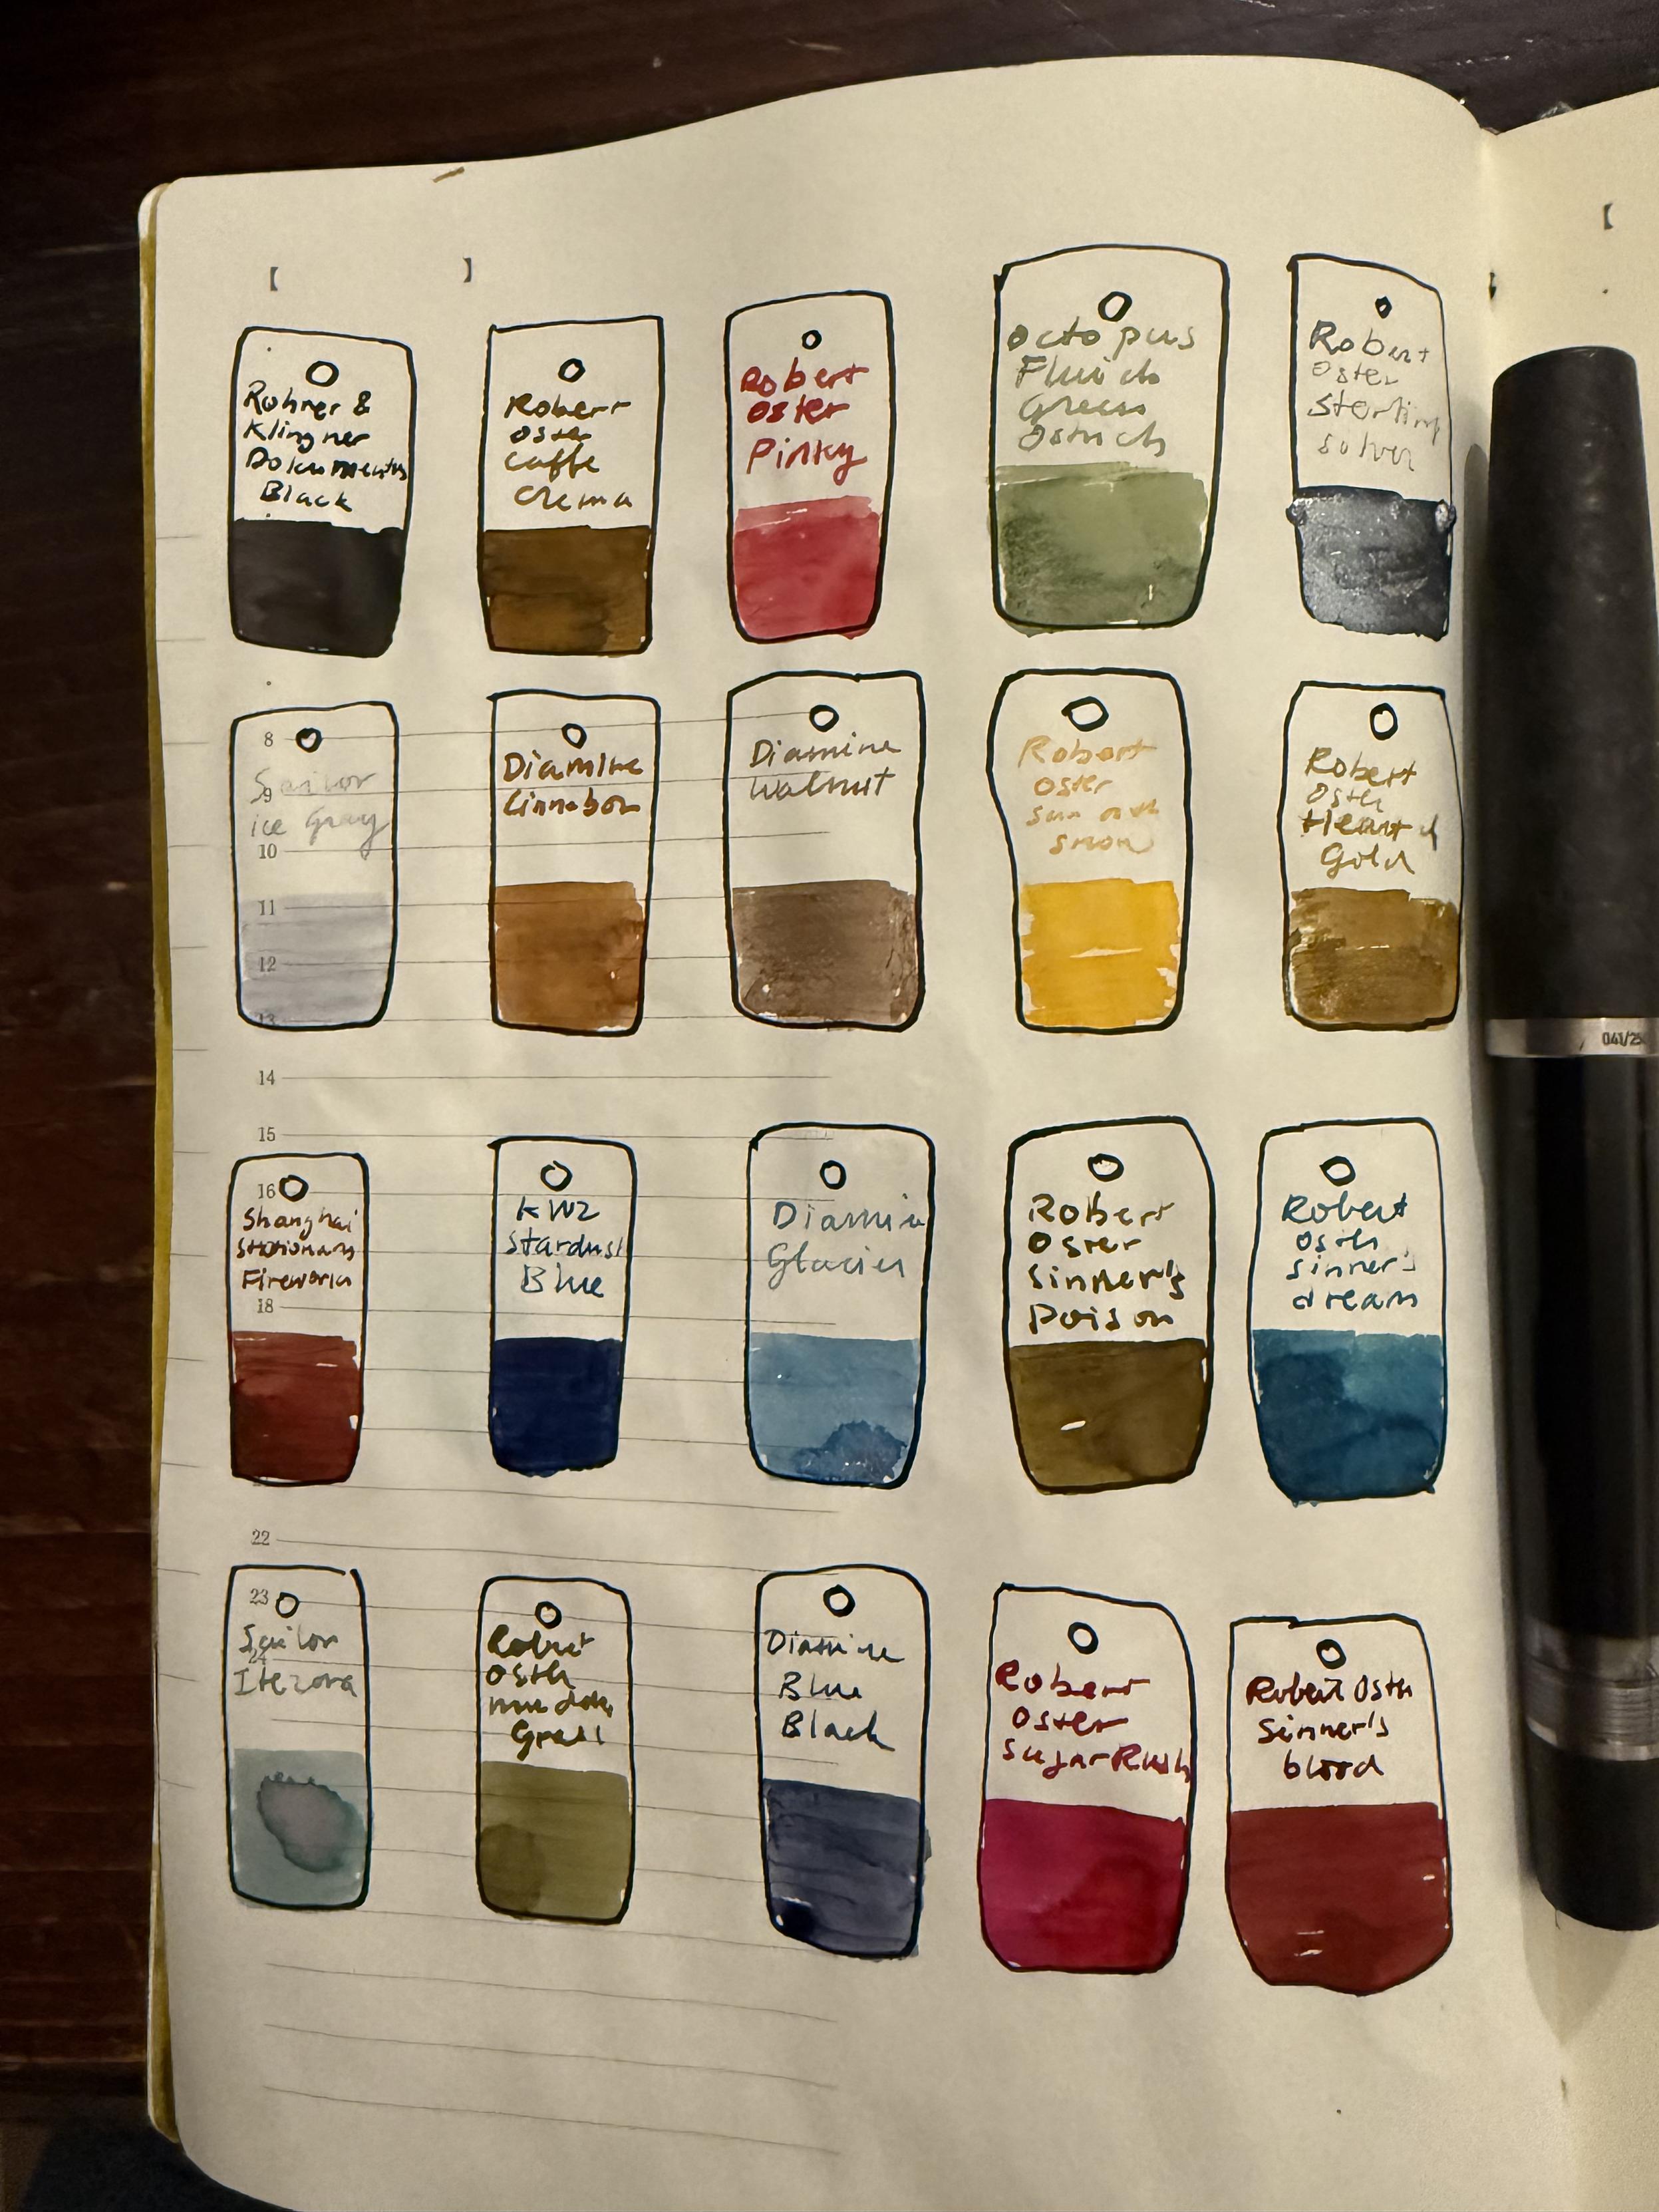 【 】
【
Rohrer &
Klingner
Dokumentus
Black
Robert
Oster
Caffe
Crema
Robert
Oster
Pinky
Octopus
Fluids
Green
Ostrich
Robert
Oster
Sterling
Silver
8
9
10
11
12
13
Sailor
ice Gray
Diamine
Cinnabon
Diamine
Walnut
Robert
Oster
Sun on the
snow
Robert
Oster
Heart of
Gold
041/25
14
15
16
18
Shanghai
Stationary
Fireworks
KWZ
Stardust
Blue
Diamin
Glacier
Robert
Oster
Sinner's
Poison
Robert
Oster
sinner's
dream
22
23
24
Sailor
Itezora
Robert
Oster
Grass
Diamine
Blue
Black
Robert
Oster
Sugar Rush
Robert Oster
Sinner's
blood